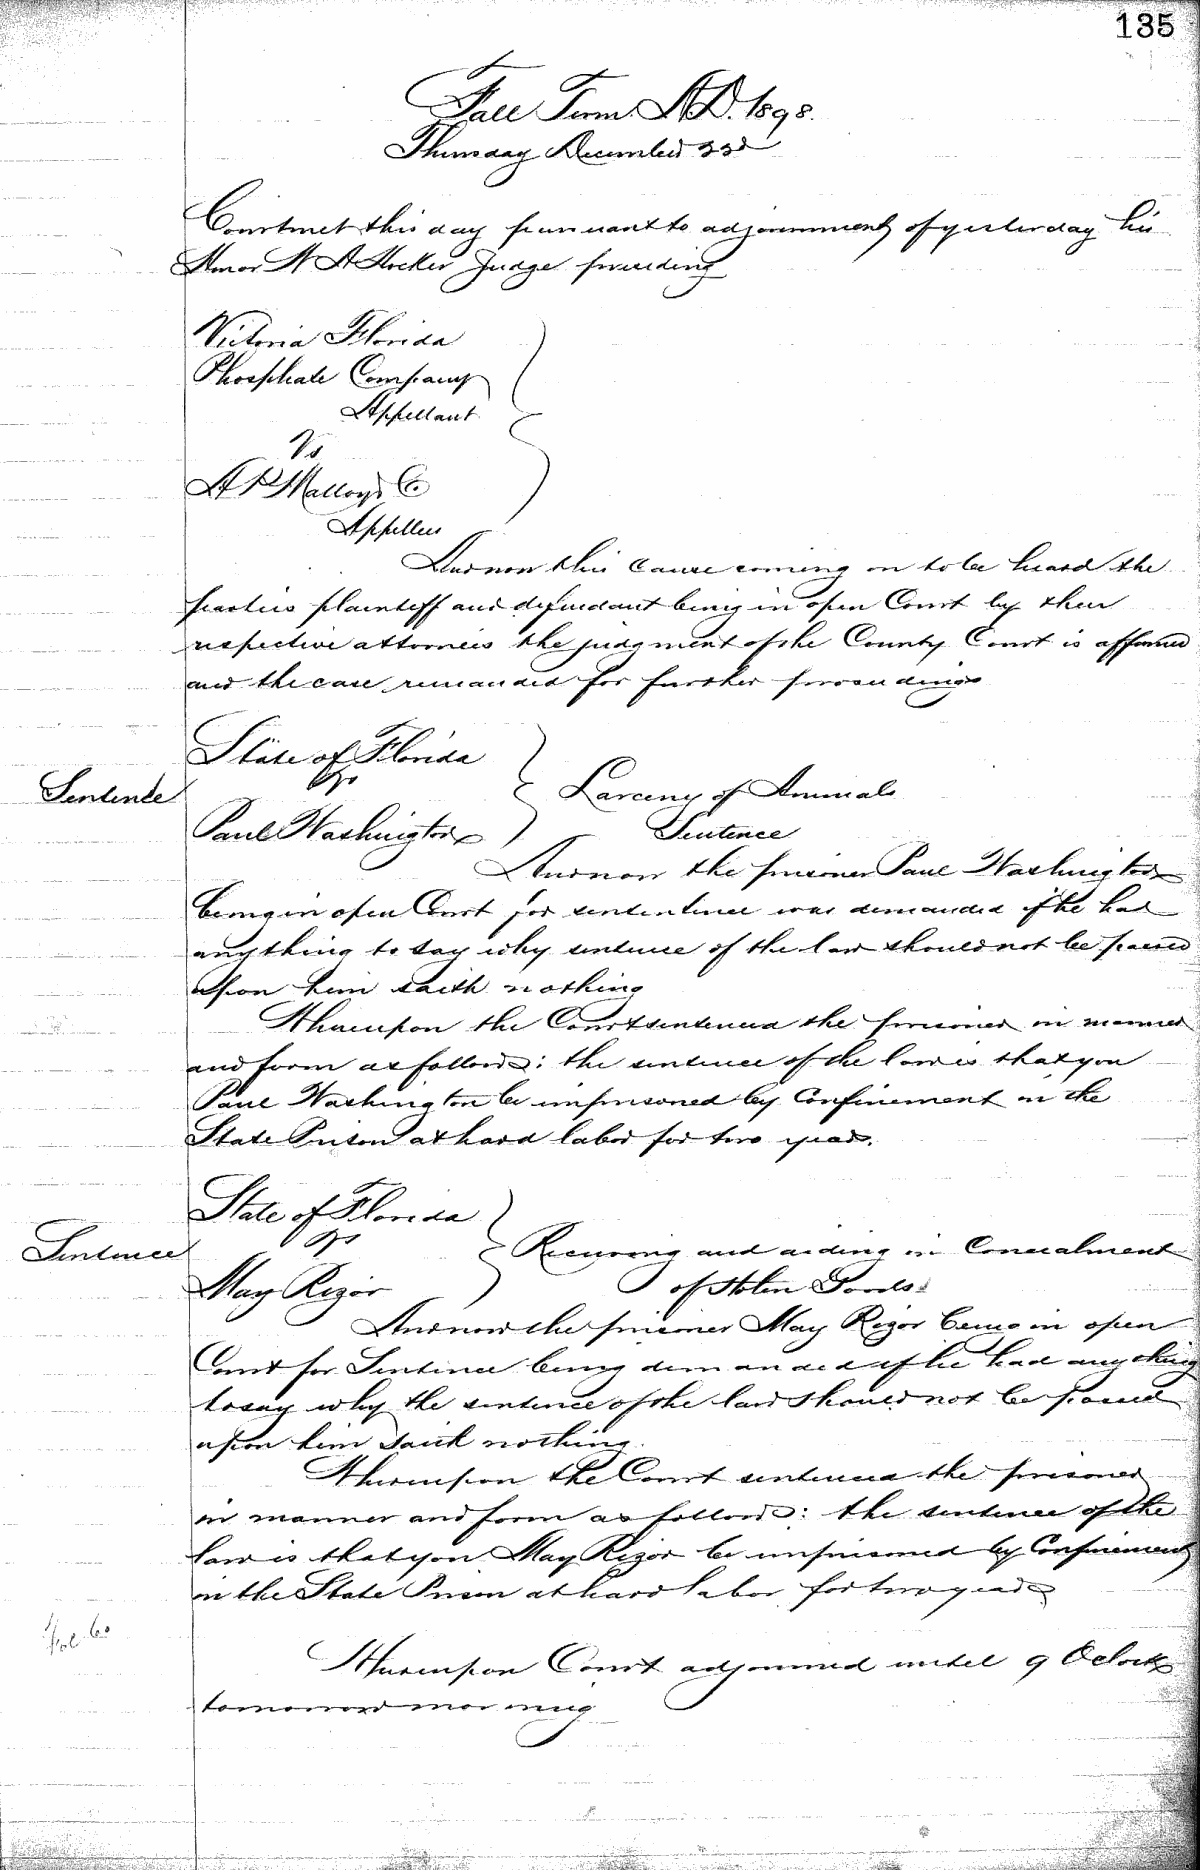 135
Fall Term A.D. 1898.
Thursday December 22d
Court met this day pursuant to adjournment of yesterday his
Honor W A Hocker Judge presiding
Victoria Florida
Phosphate Company
Appellant
Vs
A P Malloy & Co
Appellees
And now this cause coming on to be heard the
parties plaintiff and defendant being in open Court by their
respective attorneies the judgment of the County Court is affirmed
and the case remanded for further proceedings
State of Florida
vs
Larceny of Animals
Sentence
Paul Washington
Sentence
And now the prisoner Paul Washington
being in open Court for sententence was demanded if he had
anything to say why sentence of the law should not be passed
upon him saith nothing
Whereupon the Court sentenced the prisoner in manner
and form as follows: the sentence of the law is that you
Paul Washington be imprisoned by Confinement in the
State Prison at hard labor for two years.
State of Florida
vs
Sentence
Receiving and aiding in Concealment
May Rizor
of Stolen Goods.
And now the prisoner May Rizor being in open
Court for Sentence being demanded if he had anything
to say why the sentence of the law should not be passed
upon him saith nothing.
Whereupon the Court sentenced the prisoner
in manner and form as follows: the sentence of the
law is that you May Rizor be imprisoned by Confinement
in the State Prison at hard labor for two years
Whereupon Court adjourned until 9 Oclock
tomorrow morning